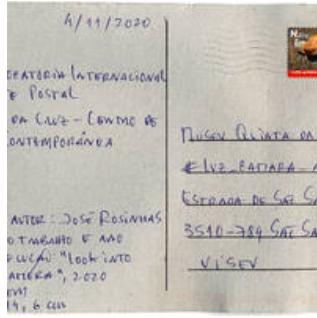 4/11/2020
OCATÓRIA INTERNACIONAL
E POSTAL
DA CRUZ - CENTRO DE
CONTEMPORÂNEA
AUTOR: JOSÉ ROSINHAS
O TRABALHO E ANO
"LOOK INTO
2020
14,6 CM
MUSEU QUINTA DA
ESTRADA DE SÃO SA
3510-784 SÃO SA
VISEU